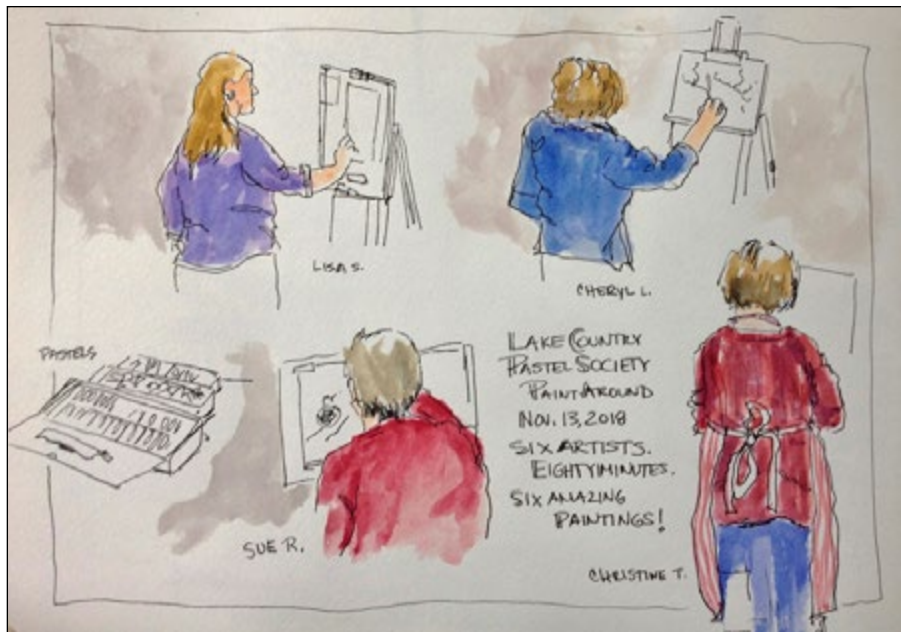 LISA S.
CHERYL L.
PASTELS
LAKE COUNTRY
PASTEL SOCIETY
PAINT AROUND
NOV. 13, 2018
SIX ARTISTS.
EIGHTY MINUTES.
SIX AMAZING
PAINTINGS!
SUE R.
CHRISTINE T.